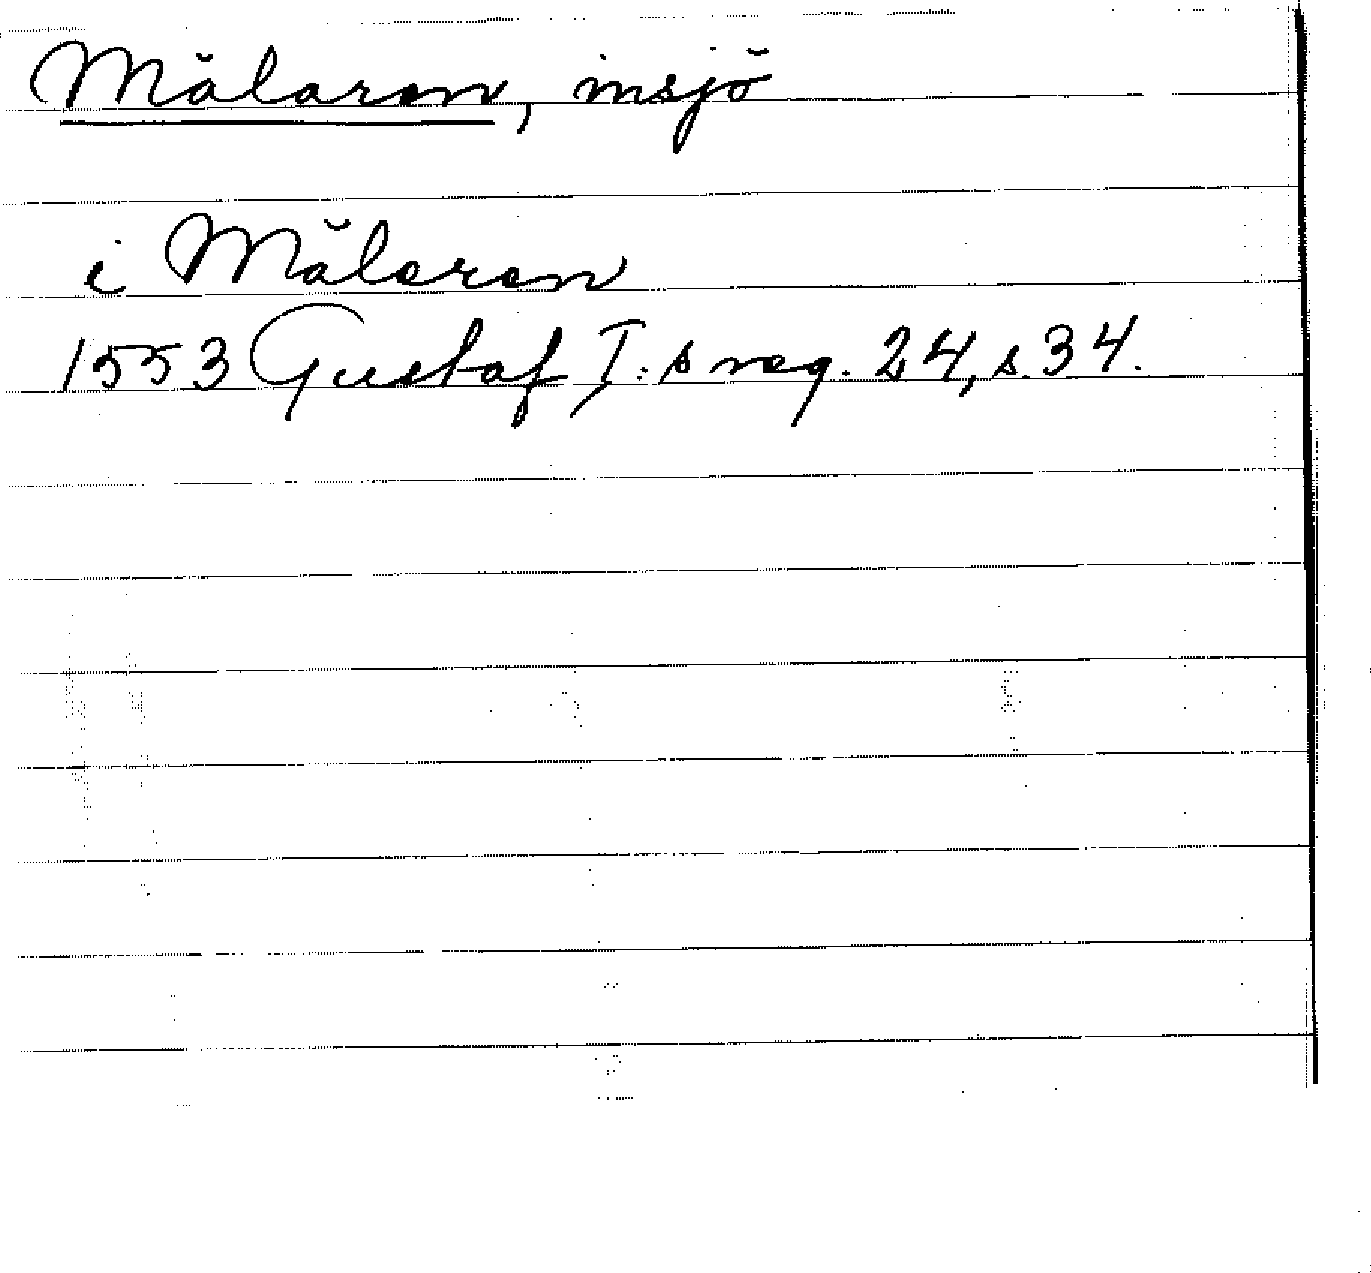 Mälaren, insjö
i Mälaren
1553 Gustaf I:s reg. 24, s. 34.